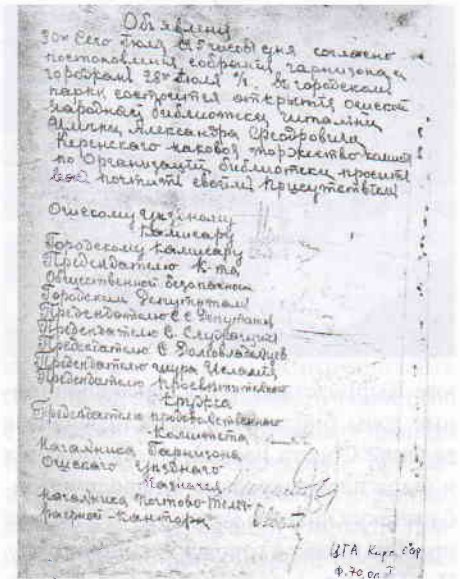 Объявлены
30го сего Июля в 5 часов дня согласно
постановления собрания гарнизона и
горобрани 28го Июля с/г. в городском
парке состоится открытия ошской
народной библиотеки читальни
имени Александра Федоровича
Керенского каковое торжество
по Организации библиотеки просит
Вас почтить своим присутствием
Ошскому уездному
Комисару
Городскому комисару
Председателю К-та
Общественной безопасности
Городским Депутатам
Председателю С.С. Депутатов
Председателю С. Служащих
Председателю С. Домовладельцев
Председателю шура Исламия
Председателю просветительного
кружка
Председателю продовольственного
Комитета
Начальника Гарнизона
Ошского уездного
Казначея
Начальника почтово-теле-
графной-конторы
ЦГА Кирг ССР
Ф. 70, оп I